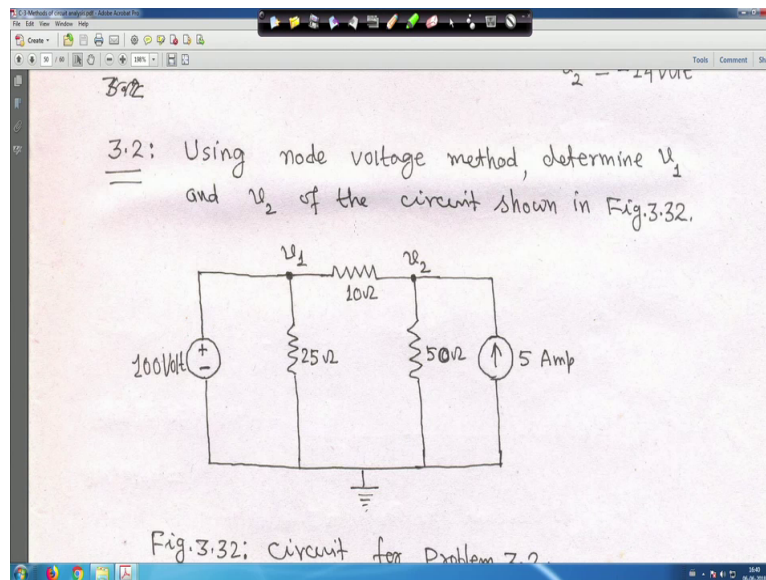 C-3-Methods of circuit analysis.pdf - Adobe Acrobat Pro
File Edit View Window Help
Create
50 / 80 198% Tools Comment
υ₂ = -14 Volt
3.2: Using node voltage method, determine υ₁
and υ₂ of the circuit shown in Fig.3.32.
υ₁ υ₂
10Ω
100Volt + - 25Ω 50Ω 5 Amp
Fig.3.32: Circuit for Problem 3.2.
16:40